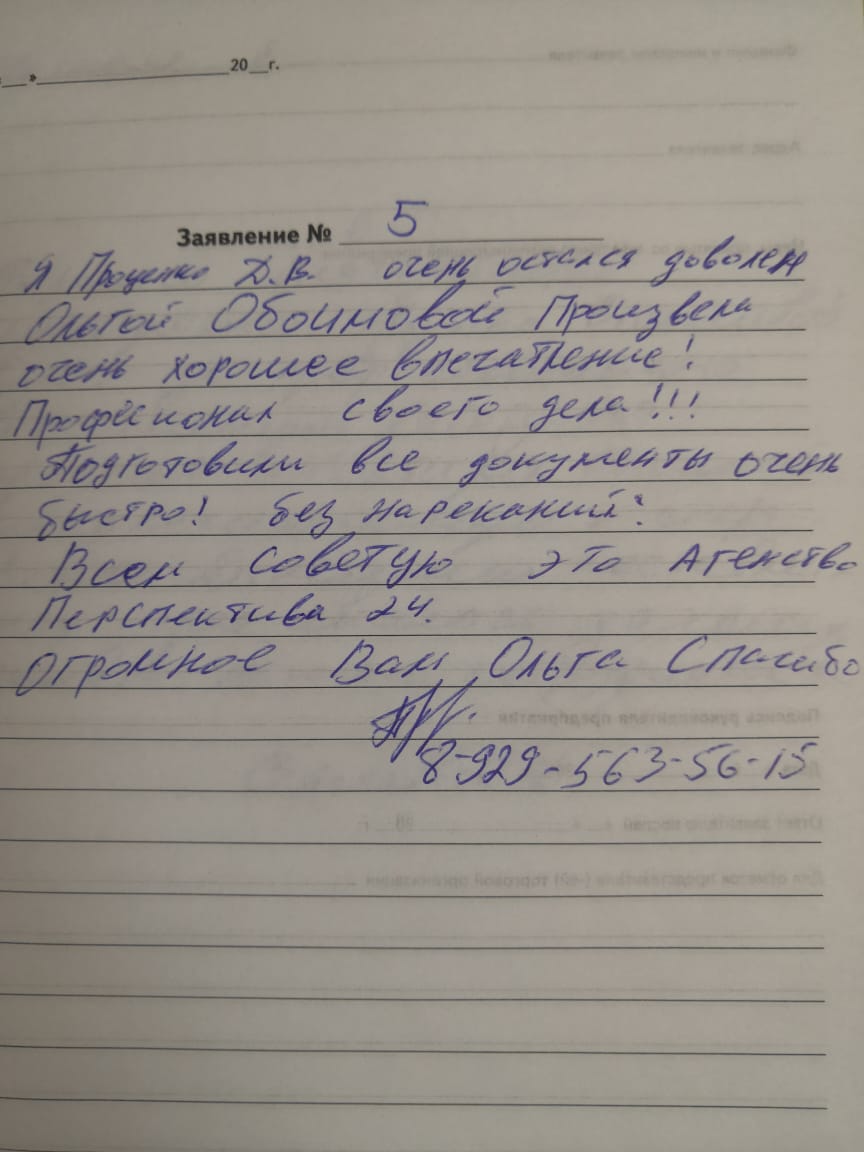 «__»____________________20__г.
Заявление № 5
Я Проценко Д.В. очень остался доволен
Ольгой Обоимовой Произвела
очень хорошее впечатление!
Професионал своего дела!!!
Подготовили все документы очень
быстро! без нареканий!
Всем советую это Агенство
Перспектива 24.
Огромное Вам Ольга Спасибо
8-929-563-56-15